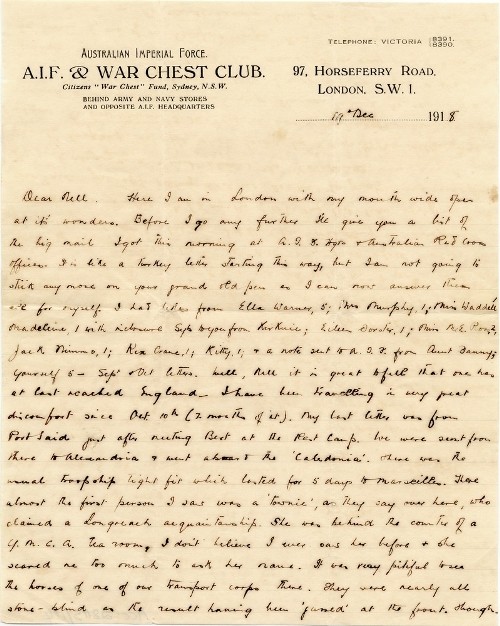 TELEPHONE: VICTORIA 8391. 8390.
AUSTRALIAN IMPERIAL FORCE.
A.I.F. & WAR CHEST CLUB.
Citizens "War Chest" Fund, Sydney, N.S.W.
BEHIND ARMY AND NAVY STORES
AND OPPOSITE A.I.F. HEADQUARTERS
97, HORSEFERRY ROAD,
LONDON, S.W. 1.
19th Dec 1918
Dear Nell. Here I am in London with my mouth wide open
at its wonders. Before I go any further I'll give you a list of
the big mail I got this morning at A.I.F. Hqrs & Australian Red Cross
offices. It is like a Turkey letter starting this way, but I am not going to
stick any more on your grand old pen as I can now answer them
all for myself. I had letters from Ella Warner, 5; Mrs Murphy, 1; Miss Waddell
Madeline, 1 with enclosure Sept to you from Kerkirie; Eileen 1; Miss
Jack Nimmo, 1; Rex Crane, 1; Kitty, 1; & a note sent to A.I.F. from Aunt
Yourself 5 - Sept & Oct letters. Well, Nell it is great to feel that one has
at last reached England - I have been travelling in very great
discomfort since Oct 10th (2 months of it). My last letter was from
Port Said just after meeting Bert at the Rest Camp. We were sent from
there to Alexandria & went aboard the 'Caledonia'. There was the
usual troopship tight fit which lasted for 5 days to Marseilles. There
almost the first person I saw was a 'townie', as they say over here, who
claimed a Longreach acquaintanceship. She was behind the counter of a
Y.M.C.A. Tea room, I don't believe I ever saw her before & she
scared me too much to ask her name. It was very pitiful to see
the horses of one of our transport corps there. They were nearly all
stone-blind as the result having been 'gassed' at the front. Though